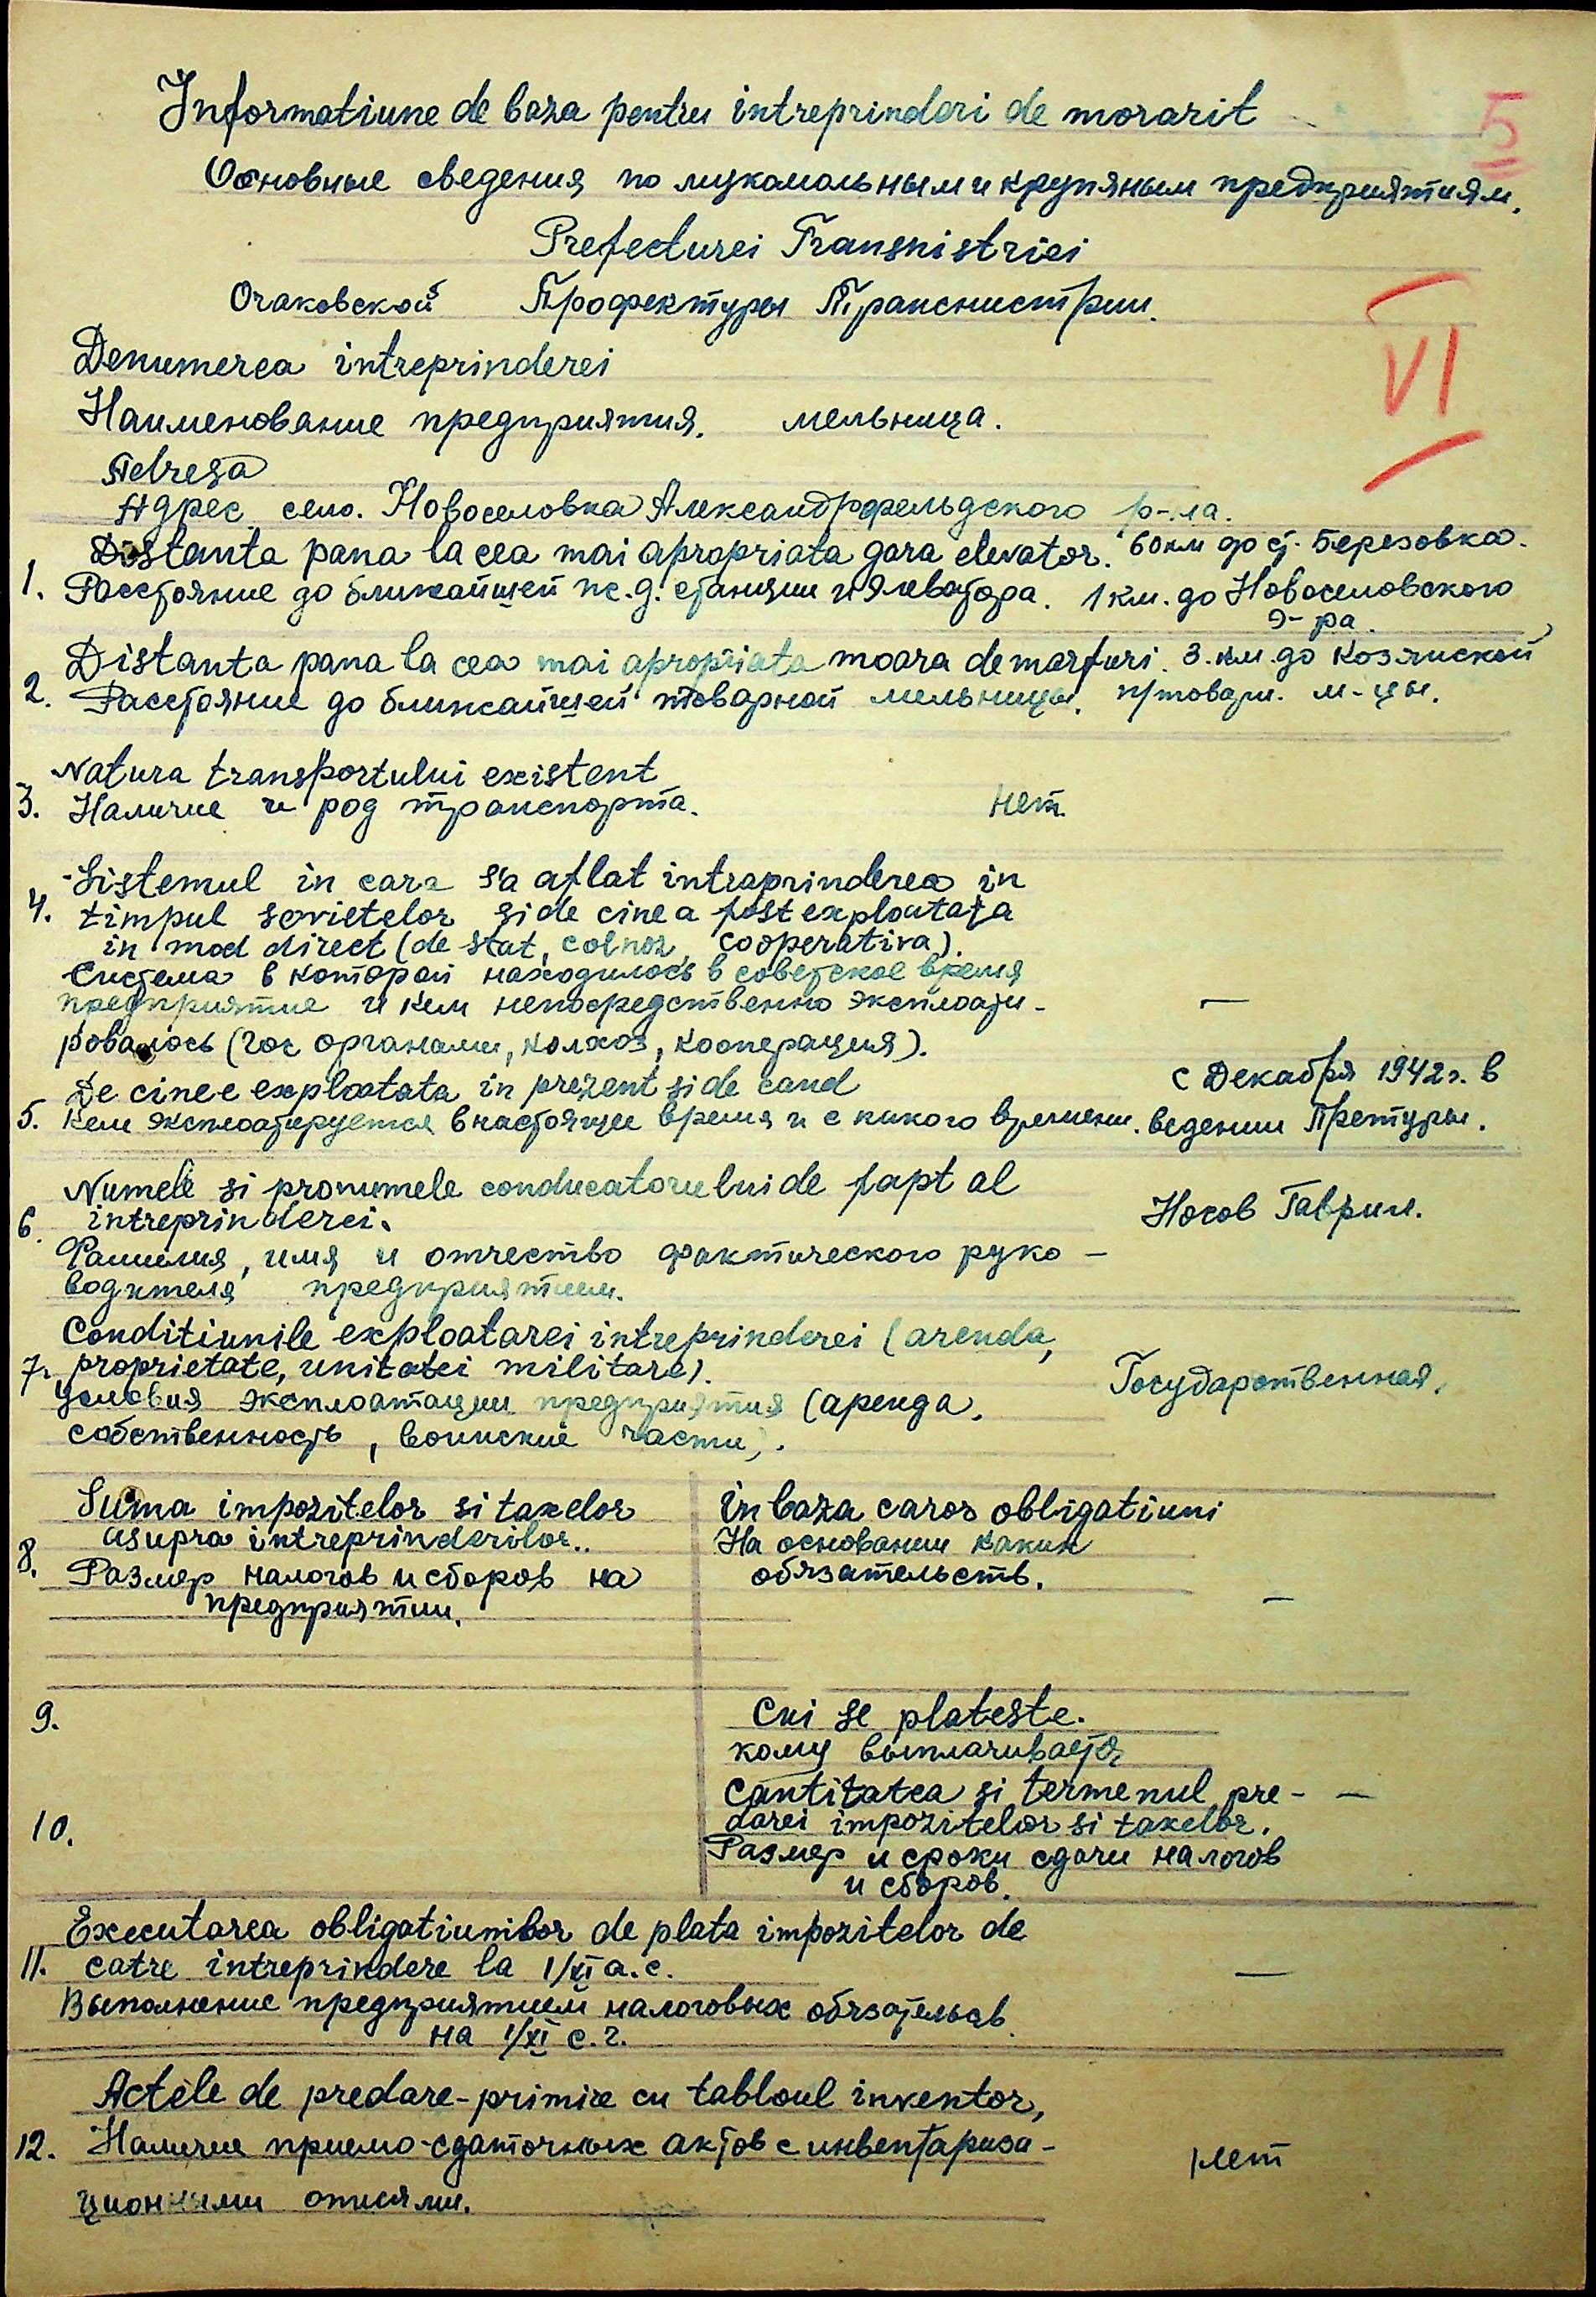 Informatiune de baza pentru intreprinderi de morarit
5
Основные сведения по мукомольным и крупяным предприятиям.
Prefecturei Transnistriei
Очаковской Профектуры Транснистрии.
VI
Denumerea intreprinderei
Наименование предприятия. мельница.
Adresa
Адрес село. Новоселовка Александрфельдского р-на.
Distanta pana la cea mai apropriata gara elevator. 60 км до ст. Березовка.
1. Расстояние до ближайшей ж.д. станции и элеватора. 1 км. до Новоселовского
э-ра.
Distanta pana la cea mai apropriata moara de marfuri. 3. км. до Козлиской
2. Расстояние до ближайшей товарной мельницы. п/товарн. м-цы.
Natura transportului existent
3. Наличие и род транспорта. нет.
Sistemul in care s'a aflat intraprinderea in
4. timpul sovietelor si de cine a fost exploatata
in mod direct (de stat, colhoz, cooperativa).
Система в которой находилось в советское время
предприятие и кем непосредственно эксплоати-
ровалось (гос органами, колхоз, кооперация). —
De cine e exploatata in prezent si de cand с Декабря 1942 г. в
5. Кем эксплоатируется в настоящее время и с какого времени. ведении Претуры.
Numele si pronumele conducatorului de fapt al
6. intreprinderei. Носов Гаврил.
Фамилия, имя и отчество фактического руко-
водителя предприятием.
Conditiunile exploatarei intreprinderei (arenda,
7. proprietate, unitatei militare).
Условия эксплоатации предприятия (аренда, Государственная.
собственность, воинские части).
Suma impozitelor si taxelor
asupra intreprinderilor..
8. Размер налогов и сборов на
предприятии.
in baza caror obligatiuni
На основании каких
обязательств. —
9. Cui se plateste.
кому выплачивается
Cantitatea si termenul pre- —
10. darei impozitelor si taxelor.
Размер и сроки сдачи налогов
и сборов.
Executarea obligatiunilor de plata impozitelor de
11. catre intreprindere la 1/XI a.c. —
Выполнение предприятием налоговых обязательсв
на 1/XI с.г.
Actele de predare-primire cu tabloul inventor,
12. Наличие приемо-сдаточных актов с инвентариза- нет
ционными описями.